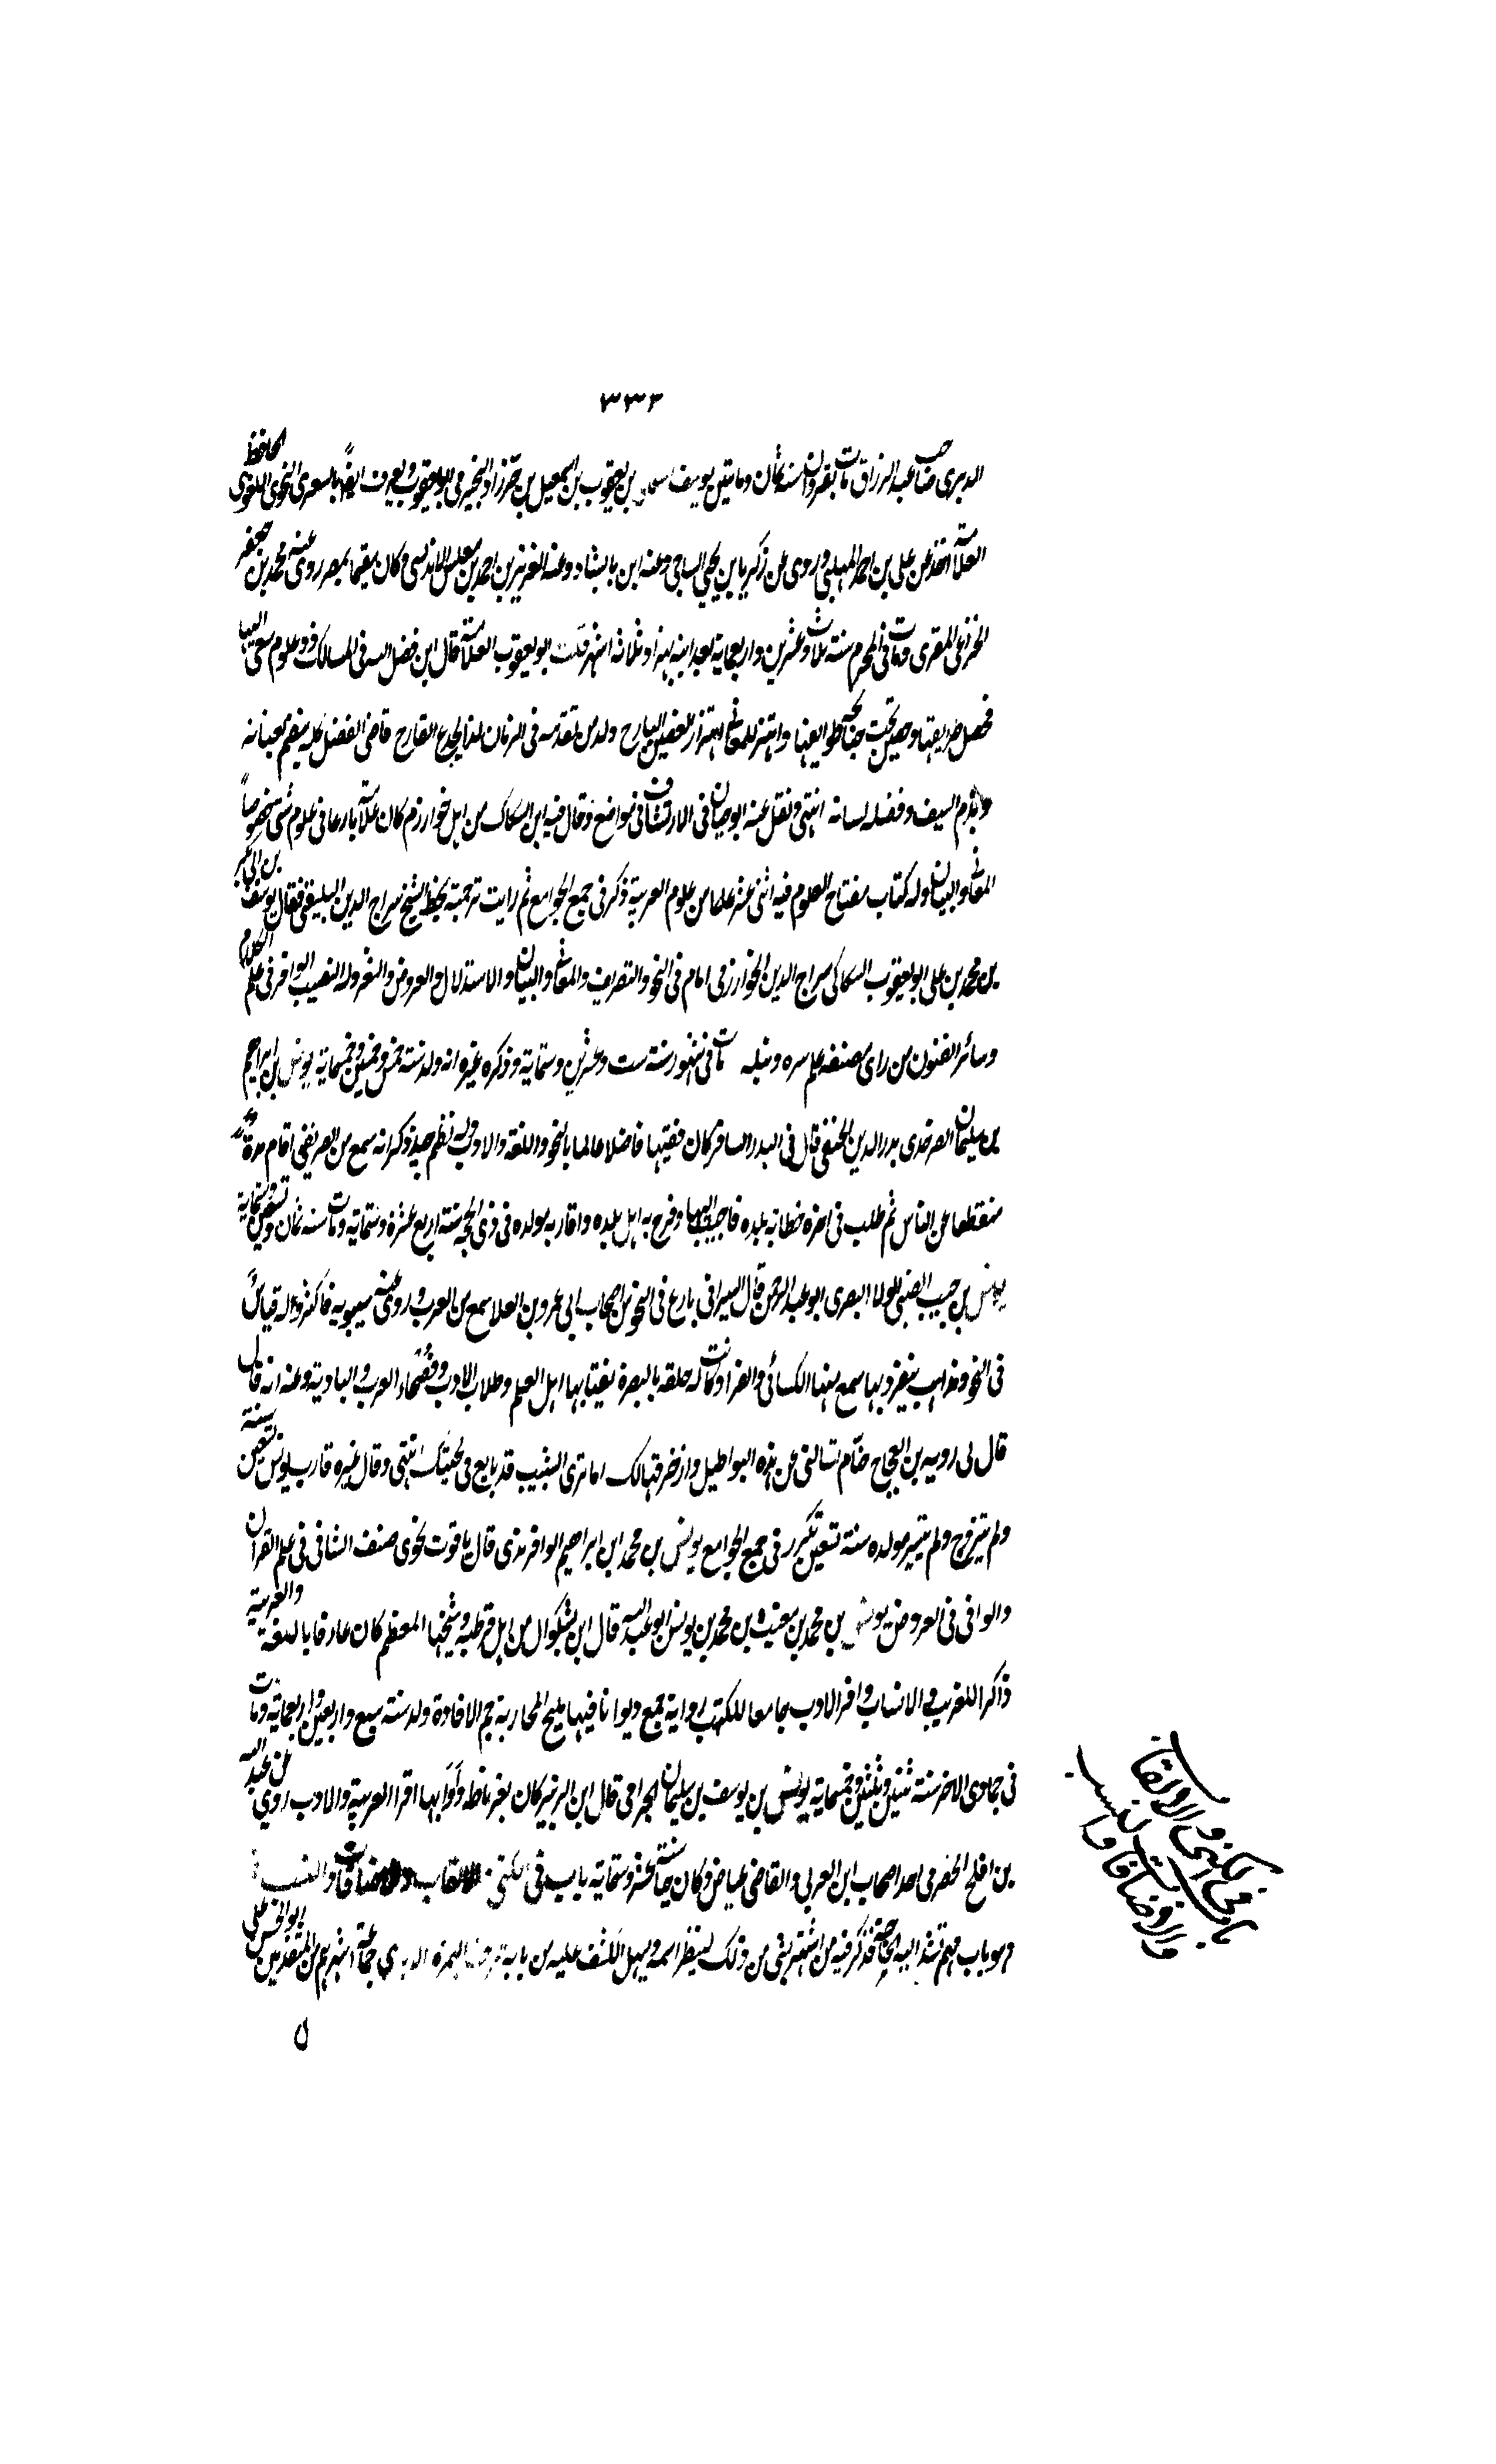 ٣٣٢
الدبرى صاحب عبد الرزاق مات بقيروان سنة ثمان ومايتين يوسف بن يعقوب بن اسمعيل بن خرزاد النجيرمى ابو يعقوب ويعرف ايضاً بالسعترى النحوى اللغوى الحافظ
العلامة اخذ عن على بن احمد المهلبى وروى عن زكريا بن يحيى الساجى وعنه ابن بابشاد وعبد العزيز بن احمد بن مغلس الاندلسى وكان مقيما بمصر روى عنه محمد بن جعفر
المقرى ومات فى المحرم سنة ثلاث وعشرين واربعماية بعد ابنه بهزاد بثلاثة اشهر قلت ابو يعقوب العلامة قال ابن فضل الله فى المسالك ذو علوم سعى اليها
فحصل طريقها وحيث تحت جناحه طوايفها واهتز للمعانى اهتزاز الغصن البارح ولد من تقدمه فى الزمان لذا الجذع القارح قاضى الفضل كله يزم بعنانه
السيف وفضله لسانه انتهى ونقل عنه ابو حيان فى الارتشاف فى مواضع وقال فيه ابن السكاك من اهل خوارزم كان علامة بارعا فى علوم شتى خصوصاً
المعانى والبيان وله كتاب مفتاح العلوم فيه اثنى عشر علما من علوم العربية ذكر فى جمع الجوامع ثم رايت ترجمته بخط الشيخ سراج الدين البلقينى فقال يوسف بن ابى بكر
بن محمد بن على ابو يعقوب السكاكى سراج الدين الخوارزمى امام فى النحو والتصريف والمعانى والبيان والاستدلال والعروض والشعر وله النصيب الوافر فى علم الكلام
وسائر الفنون من راى مصنفه علم سره ونبله مات فى سنة ست وعشرين وستماية وذكره غيره انه ولد سنة خمس وخمسين وخمسماية يونس بن ابراهيم
بن سليمان الصرخدى بدر الدين الحنفى قال فى البدر السافر كان فقيها فاضلا عالما بالنحو واللغة والادب وله نظم جيد ذكر انه سمع من الصريفينى اقام مدة
منقطعا عن الناس ثم طلب فى اخره خطابة بلده فاجيب اليها وفرح به اهل بلده واقاربه مولده فى ذى الحجة سنة اربع عشرة وستماية ومات سنة ثمان وتسعين وستماية
يونس بن حبيب الضبى بالولا البصرى ابو عبد الرحمن قال السيرافى بارع فى النحو من اصحاب ابى عمرو بن العلا سمع من العرب وروى عنه سيبويه فاكثر وله قياس
فى النحو ومذاهب يتفرد بها سمع منه الكسائى والفرا وكانت له حلقة بالبصرة ينتابها اهل العلم وطلاب الادب وفصحاء العرب والبادية وعنه انه قال
قال لى روبه بن العجاج حتام تسالنى عن هذه البواطيل وازخرفها لك اما ترى الشيب قد بلغ فى لحيتك انتهى وقال غيره قارب يونس تسعين سنة
ولم يتزوج ولم يتسر مولده سنة تسعين تكرر فى جمع الجوامع يونس بن محمد بن ابراهيم الوافرندى قال ياقوت نحوى صنف الشافى فى علم القرآن
والوافى فى العروض يونس بن محمد بن مغيث بن محمد بن يونس ابو عبد الله قال ابن بشكوال من اهل قرطبة وشيخها المعظم كان عارفا باللغة والعربية
ذاكرا للغريب والانساب وافر الادب جامعا للكتب رواية جمع ديوانا فيها مليح المحاربة جم الافادة ولد سنة سبع واربعين واربعماية ومات
فى جمادى الاخر سنة ثنتين وثلثين وخمسماية يونس بن يوسف بن سليمان الجذامى قال ابن الزبير كان بغرناطه وابها اقرا العربية والادب روى عن عبد الله
بن افلح الحضرمى احد اصحاب ابن العربى والقاضى عياض وكان حيا سنة عشر وستماية باب فى الكنى والالقاب والاضافات والنسب
وهو باب مهم تشتد اليه الحاجة نذكر فيه من اشتهر بشى من ذلك لينظر اسمه ويسهل الكشف عليه من بابه حرف الهمزة جماعة اشهرهم من المتقدمين ابو الحسن على
باب فى الكنى والالقاب
والاضافات والنسب